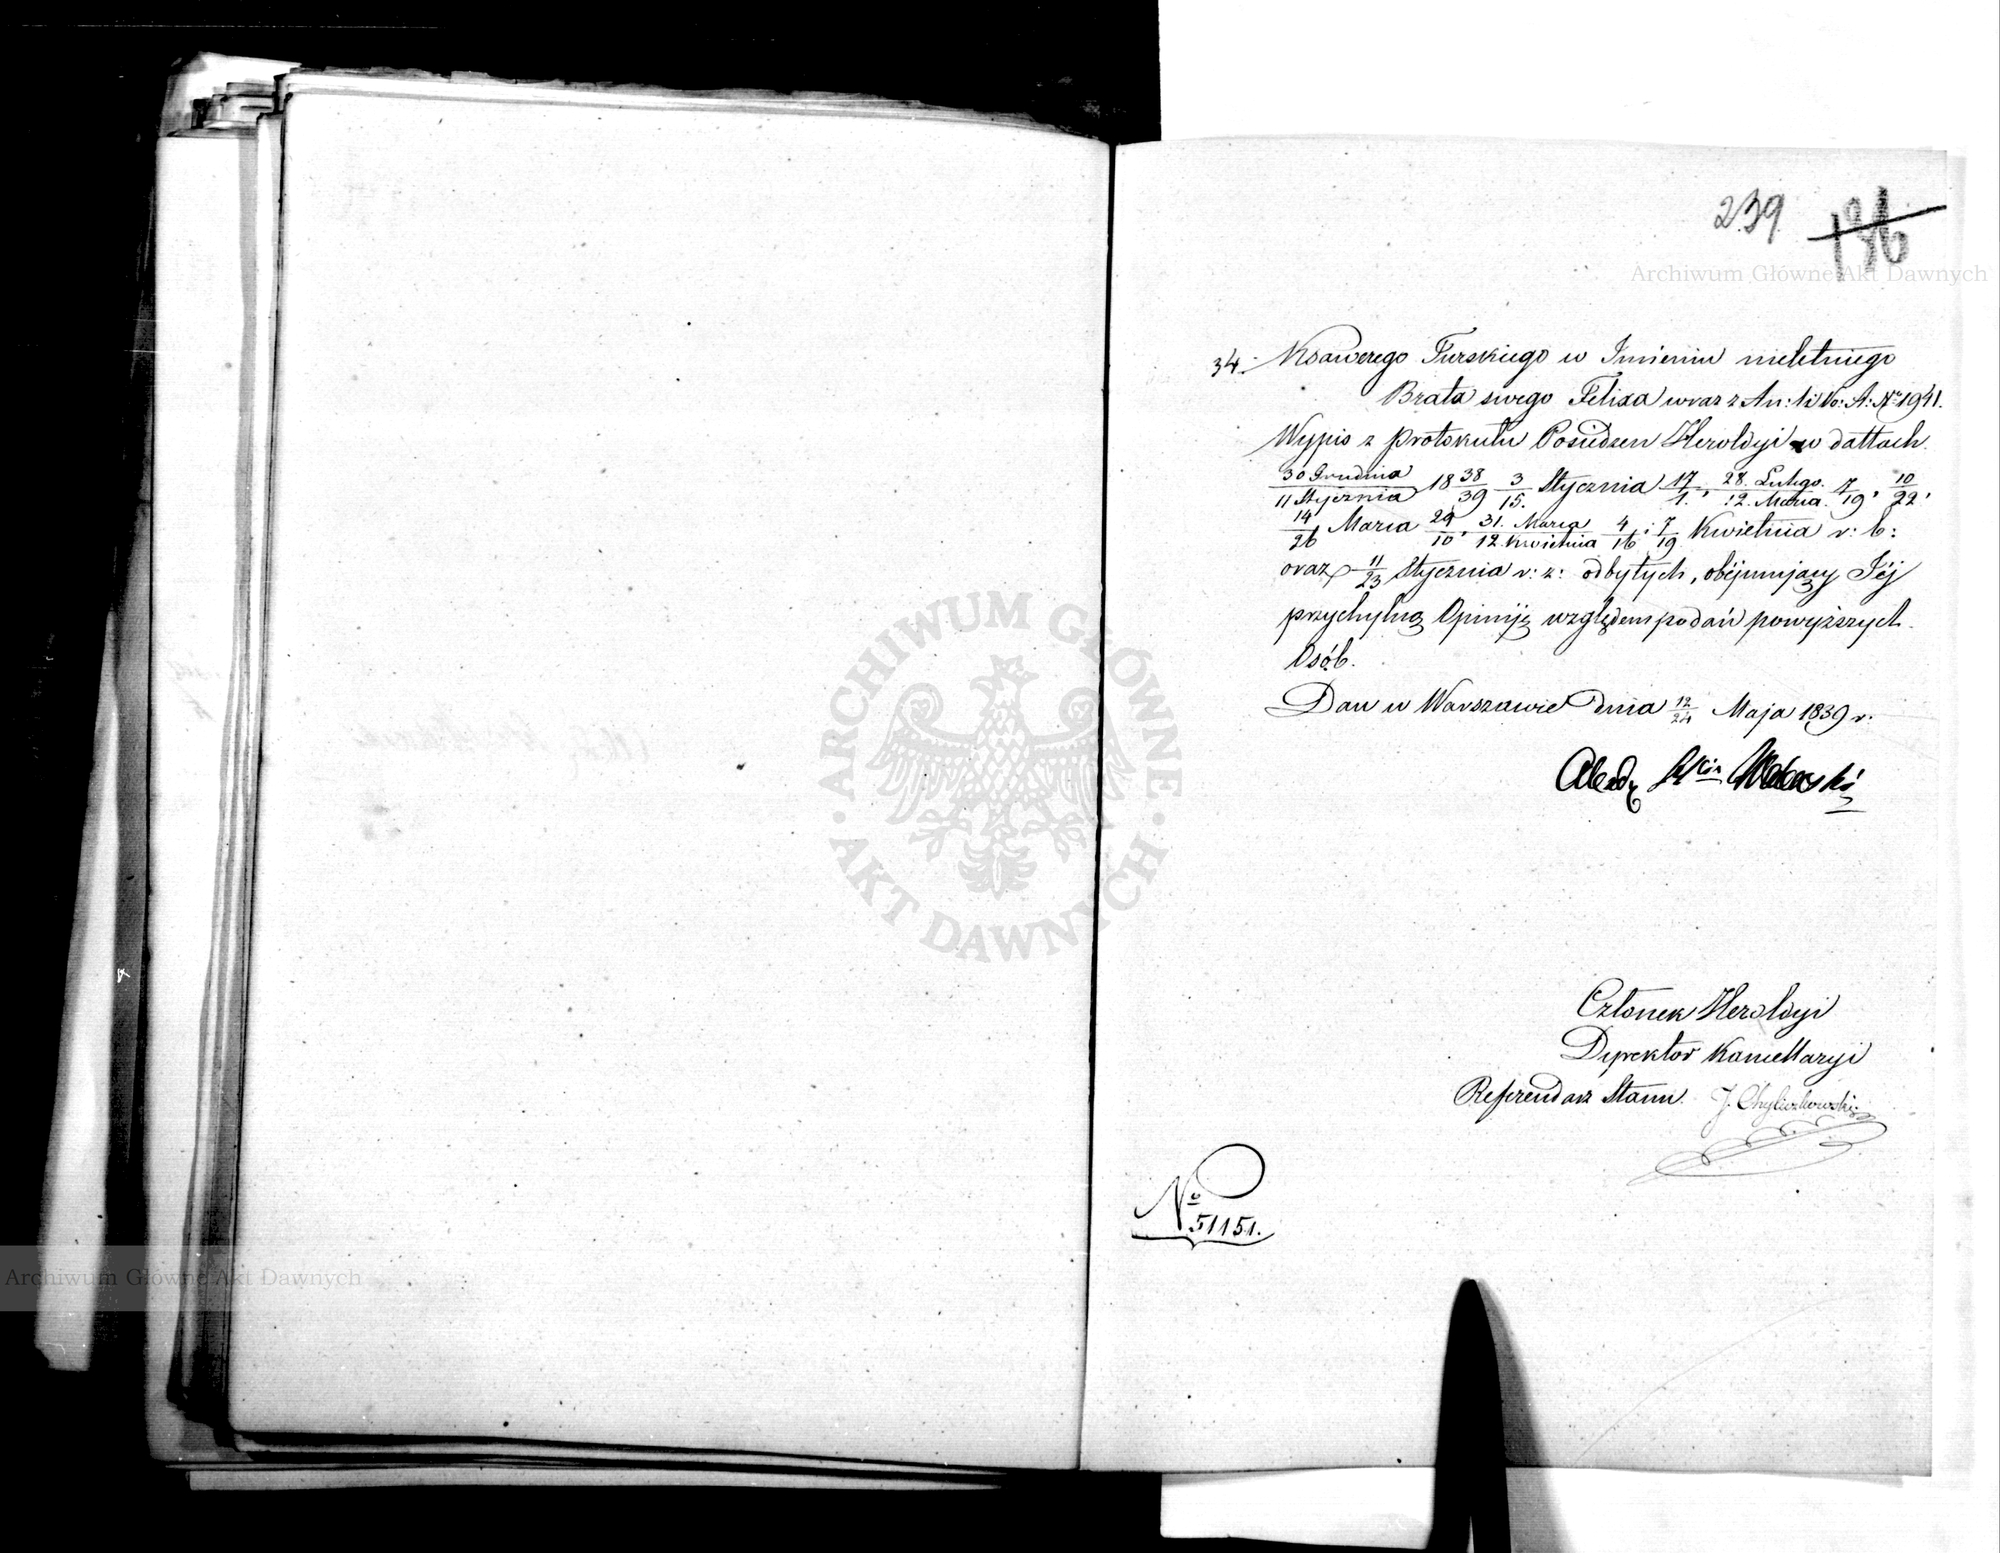 239. 136
Archiwum Główne Akt Dawnych
34. Ksawerego Turskiego w Imieniu nieletniego
Brata swego Felixa wraz z An: li No: A: No 1941.
Wypis z protokułu Posiedzen Heroldyi w dattach
30 Grudnia/11 Stycznia 18 38/39 3/15. Stycznia 17/1., 28. Lutego./12. Marca. 7/19, 10/22,
14/26 Marca 29/10, 31. Marca/12. Kwietnia 4/16 i 7/19 Kwietnia r: b:
oraz 11/23 Stycznia r: z: odbytych, obéjmujący Jéj
przychylną Opiniję względem podań powyższych
Osób.
Dan w Warszawie dnia 12/24 Maja 1839 r.
ARCHIWUM GŁÓWNE AKT DAWNYCH
Członek Heroldyi
Dyrektor Kancellaryi
Referendarz Stanu. J. Chyliczkowski
No 51151.
Archiwum Główne Akt Dawnych